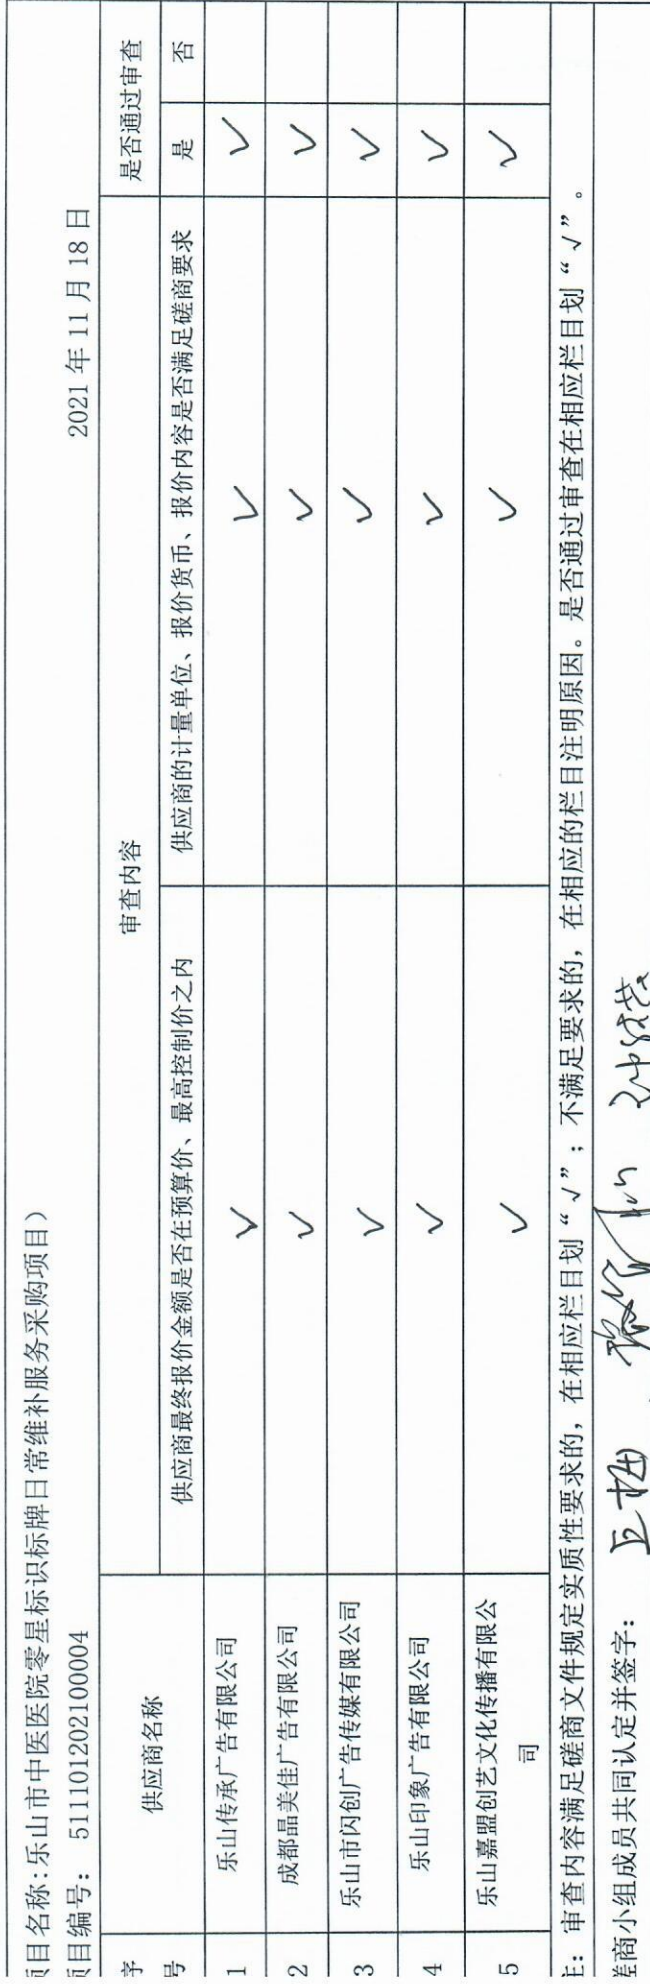 项目名称:乐山市中医医院零星标识标牌日常维补服务采购项目）
项目编号： 511101202100004 2021 年 11 月 18 日
序号 供应商名称 审查内容 是否通过审查
供应商最终报价金额是否在预算价、最高控制价之内 供应商的计量单位、报价货币、报价内容是否满足磋商要求 是 否
1 乐山传承广告有限公司 ✓ ✓ ✓
2 成都晶美佳广告有限公司 ✓ ✓ ✓
3 乐山市闪创广告传媒有限公司 ✓ ✓ ✓
4 乐山印象广告有限公司 ✓ ✓ ✓
5 乐山嘉盟创艺文化传播有限公 ✓ ✓ ✓
司
注：审查内容满足磋商文件规定实质性要求的，在相应栏目划“√”；不满足要求的，在相应的栏目注明原因。是否通过审查在相应栏目划“√”。
磋商小组成员共同认定并签字：